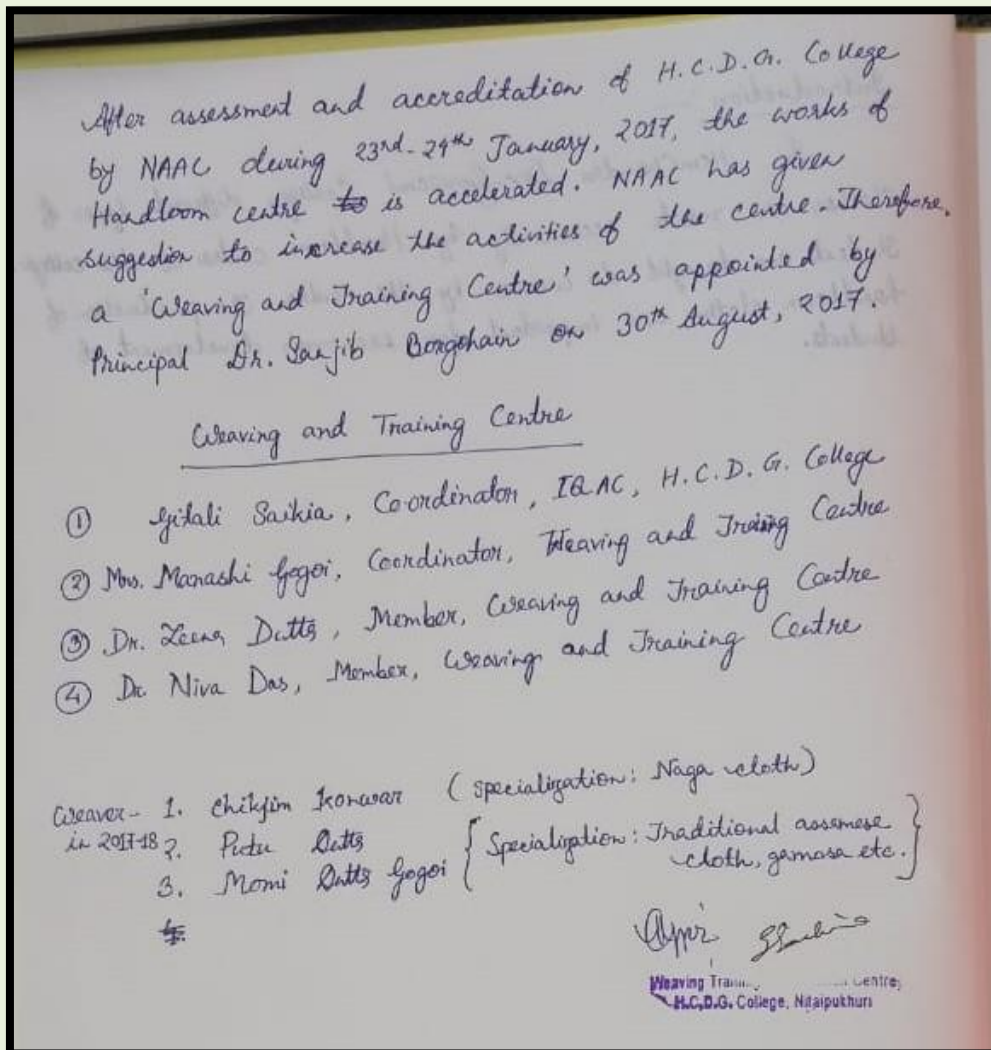 After assessment and accreditation of H.C.D.G. College
by NAAC during 23rd-24th January, 2017, the works of
Handloom centre to is accelerated. NAAC has given
suggestion to increase the activities of the centre. Therefore,
a 'Weaving and Training Centre' was appointed by
Principal Dr. Sanjib Borgohain on 30th August, 2017.
Weaving and Training Centre
① Gitali Saikia, Co-ordinator, IQAC, H.C.D.G. College
② Mrs. Manashi Gogoi, Coordinator, Weaving and Training Centre
③ Dr. Leena Dutta, Member, Weaving and Training Centre
④ Dr. Niva Das, Member, Weaving and Training Centre
Weaver- 1. Chikjim Konwar (specialization: Naga cloth)
in 2017-18 2. Putu Dutta { Specialization: Traditional assamese
3. Momi Dutta Gogoi cloth, gamosa etc. }
4.
Weaving Centre,
H.C.D.G. College, Nitaipukhuri